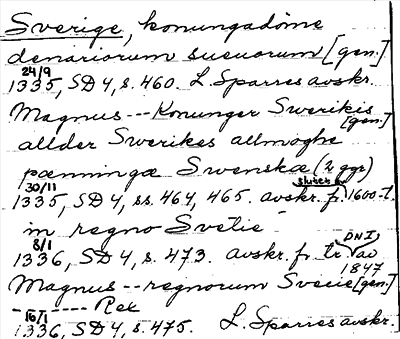 Sverige, konungadöme
denariorum sueuorum [gen.]
24/9
1335, SD 4, s. 460. L. Sparres avskr.
Magnus --- Konunger Swerikis
[gen.]
allder Swerikes allmoghe
pænninga Swenskæ (2 ggr)
30/11
1335, SD 4, ss. 464, 465. avskr. fr. slutet av 1600-t.
in regno Svetie
8/1
1336, SD 4, s. 473. avskr. fr. tr. av
DNI
1847
Magnus -- regnorum Svecie [gen.]
- ---- Rex
16/1
1336, SD 4, s. 475. L. Sparres avskr.